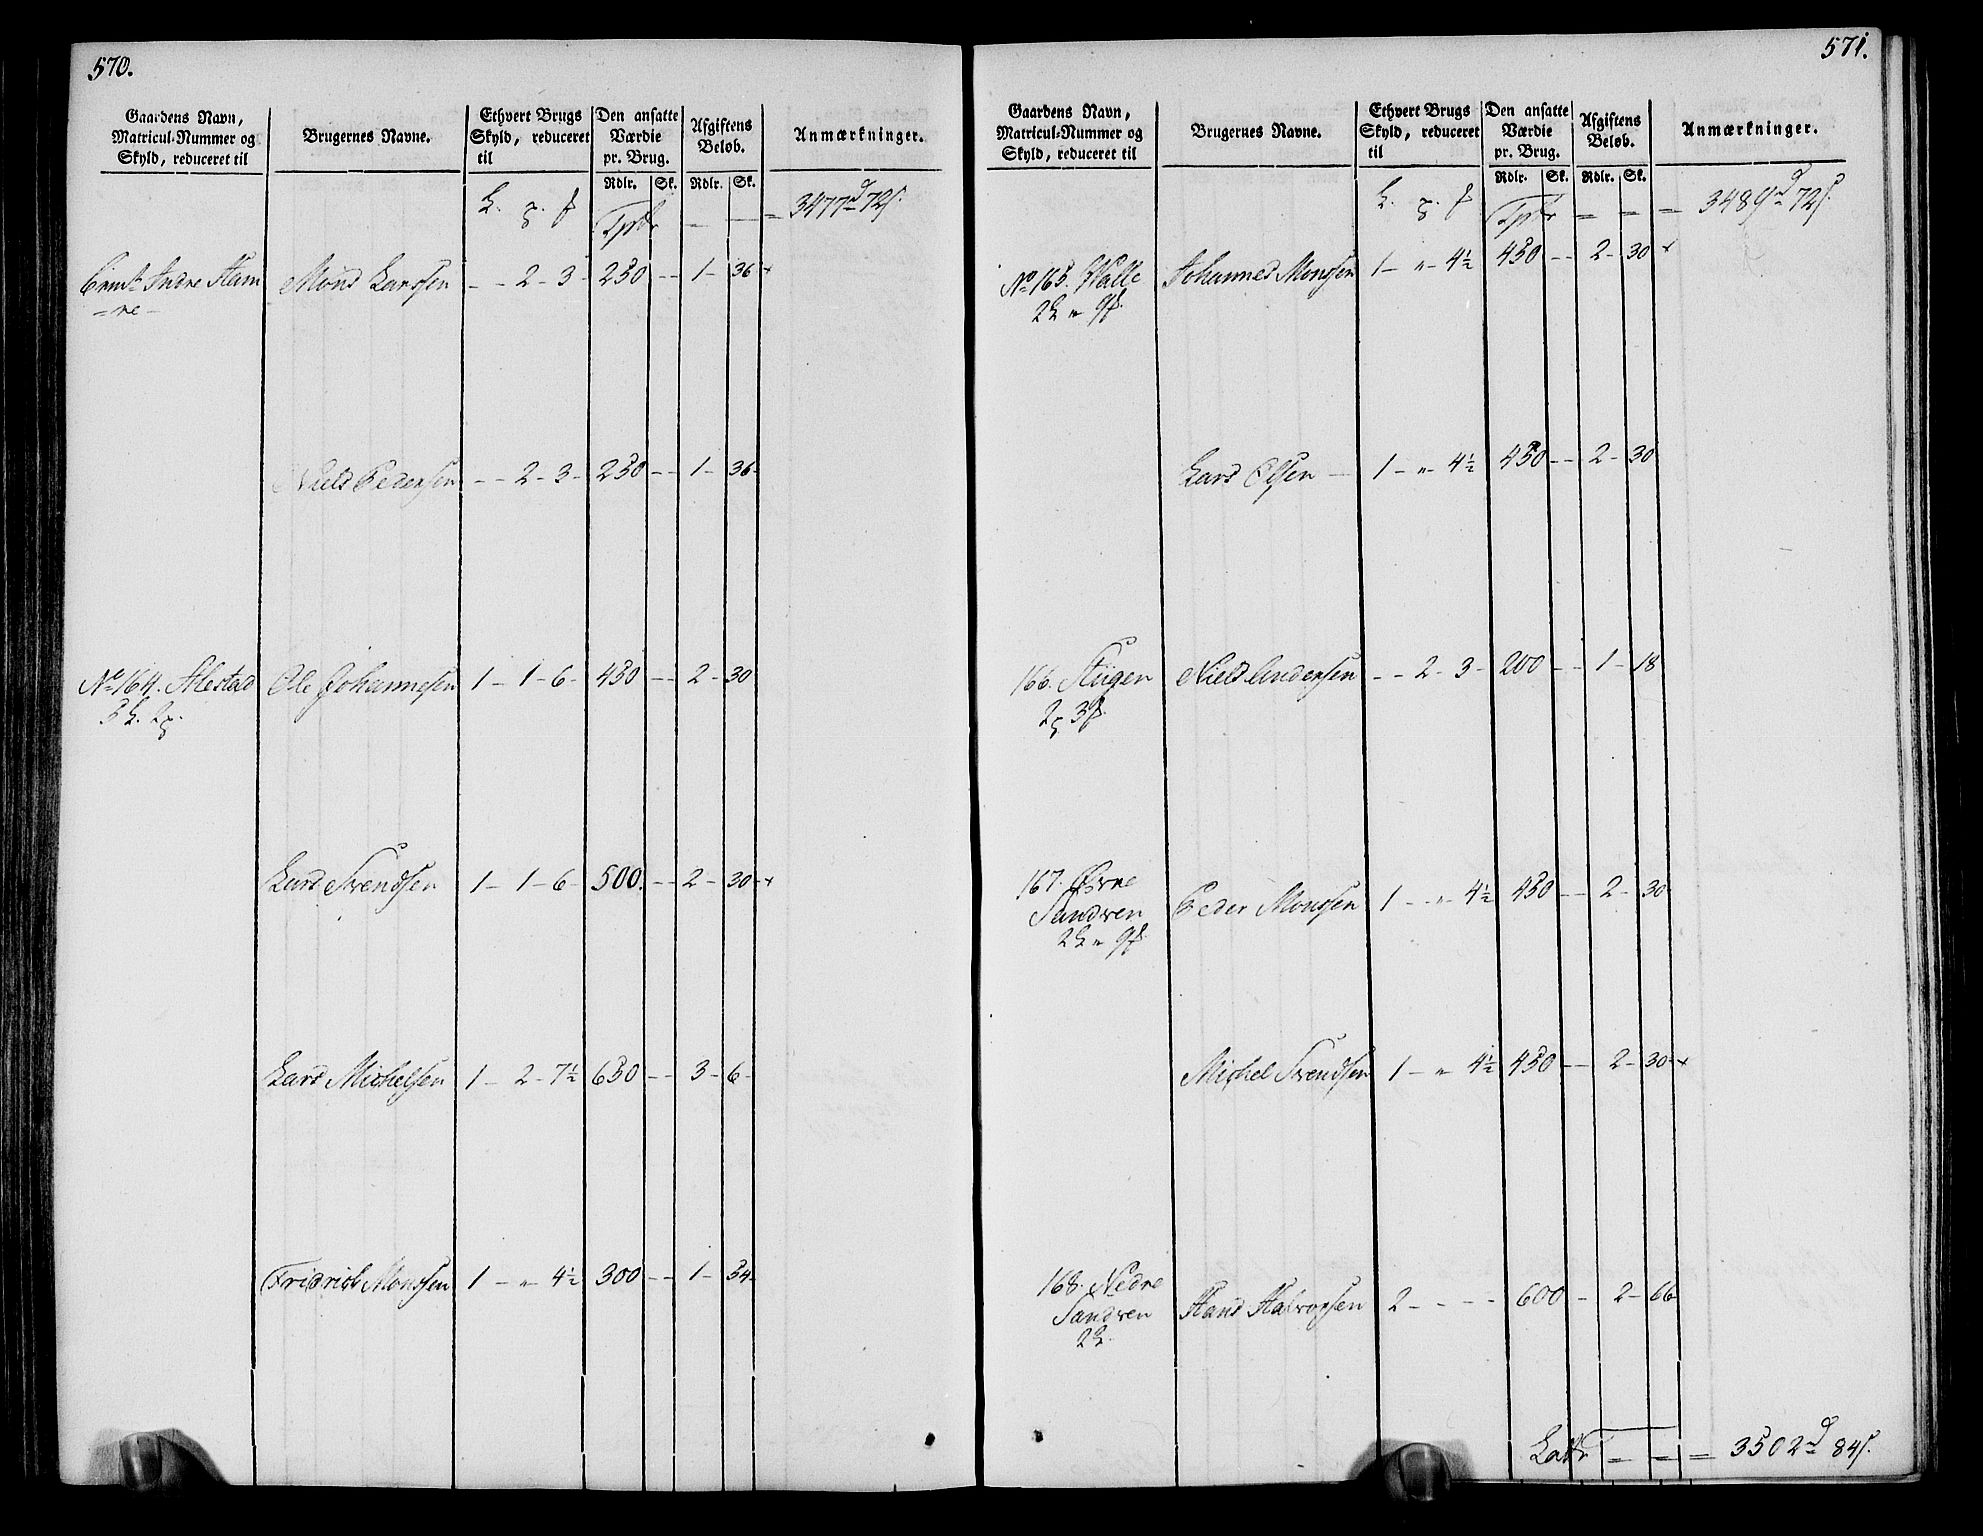 570.
Gaardens Navn, Matricul-Nummer og Skyld, reduceret til
Brugernes Navne.
Ethvert Brugs Skyld, reduceret til
Den ansatte Værdie pr. Brug.
Afgiftens Beløb.
Anmærkninger.
Rdlr. Sk. Rdlr. Sk.
Tptr — — = 3477d 72s.
Indre Ham Mons Larssen - - 2 - 3 - 250 - - 1 - 36
= re -
Niels Pedersen - - 2 - 3 - 250 - - 1 - 36
No 164. Alestad Ole Johannesen 1 - 1 - 6 - 450 - - 2 - 30
Lars Svendsen 1 - 1 - 6 - 500. - - 2 - 30
Lars Michelsen 1 - 2 - 7½ 650 - - 3 - 6 -
Fridrich Monssen 1 - " - 4½ 300 - - 1 - 54
571.
Gaardens Navn, Matricul-Nummer og Skyld, reduceret til
Brugernes Navne.
Ethvert Brugs Skyld, reduceret til
Den ansatte Værdie pr. Brug.
Afgiftens Beløb.
Anmærkninger.
Rdlr. Sk. Rdlr. Sk.
Tptr = = = 3489d 72s.
No 165. Walle Johannes Monsen 1 - " - 4½ 450 - - 2 - 30
Lars Olsen 1 - " - 4½ 450 - - 2 - 30
166. Niels Andersen - - 2 - 3 - 200 - - 1 - 18
167. Øvre
Sandven Peder Monssen 1 - " - 4½ 450 - - 2 - 30
Michel Svendsen 1 - " - 4½ 450 - - 2 - 30
168. Nedre
Sandven Hans Halvorsen 2 - - - - 600 - 2 - 66
Latr = = = 3502d 84s.